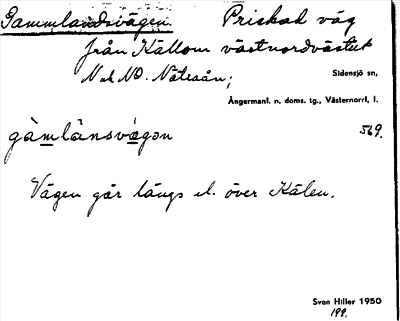 Gammlandsvägen. Priskad väg
från Källom västnordvästut
N och NO. Nätraån;
Sidensjö sn,
Ångermanl. n. doms. tg., Västernorrl, l.
gàmlánsvägən 569.
Vägen går längs el. över Kälen.
Sven Hiller 1950
199.